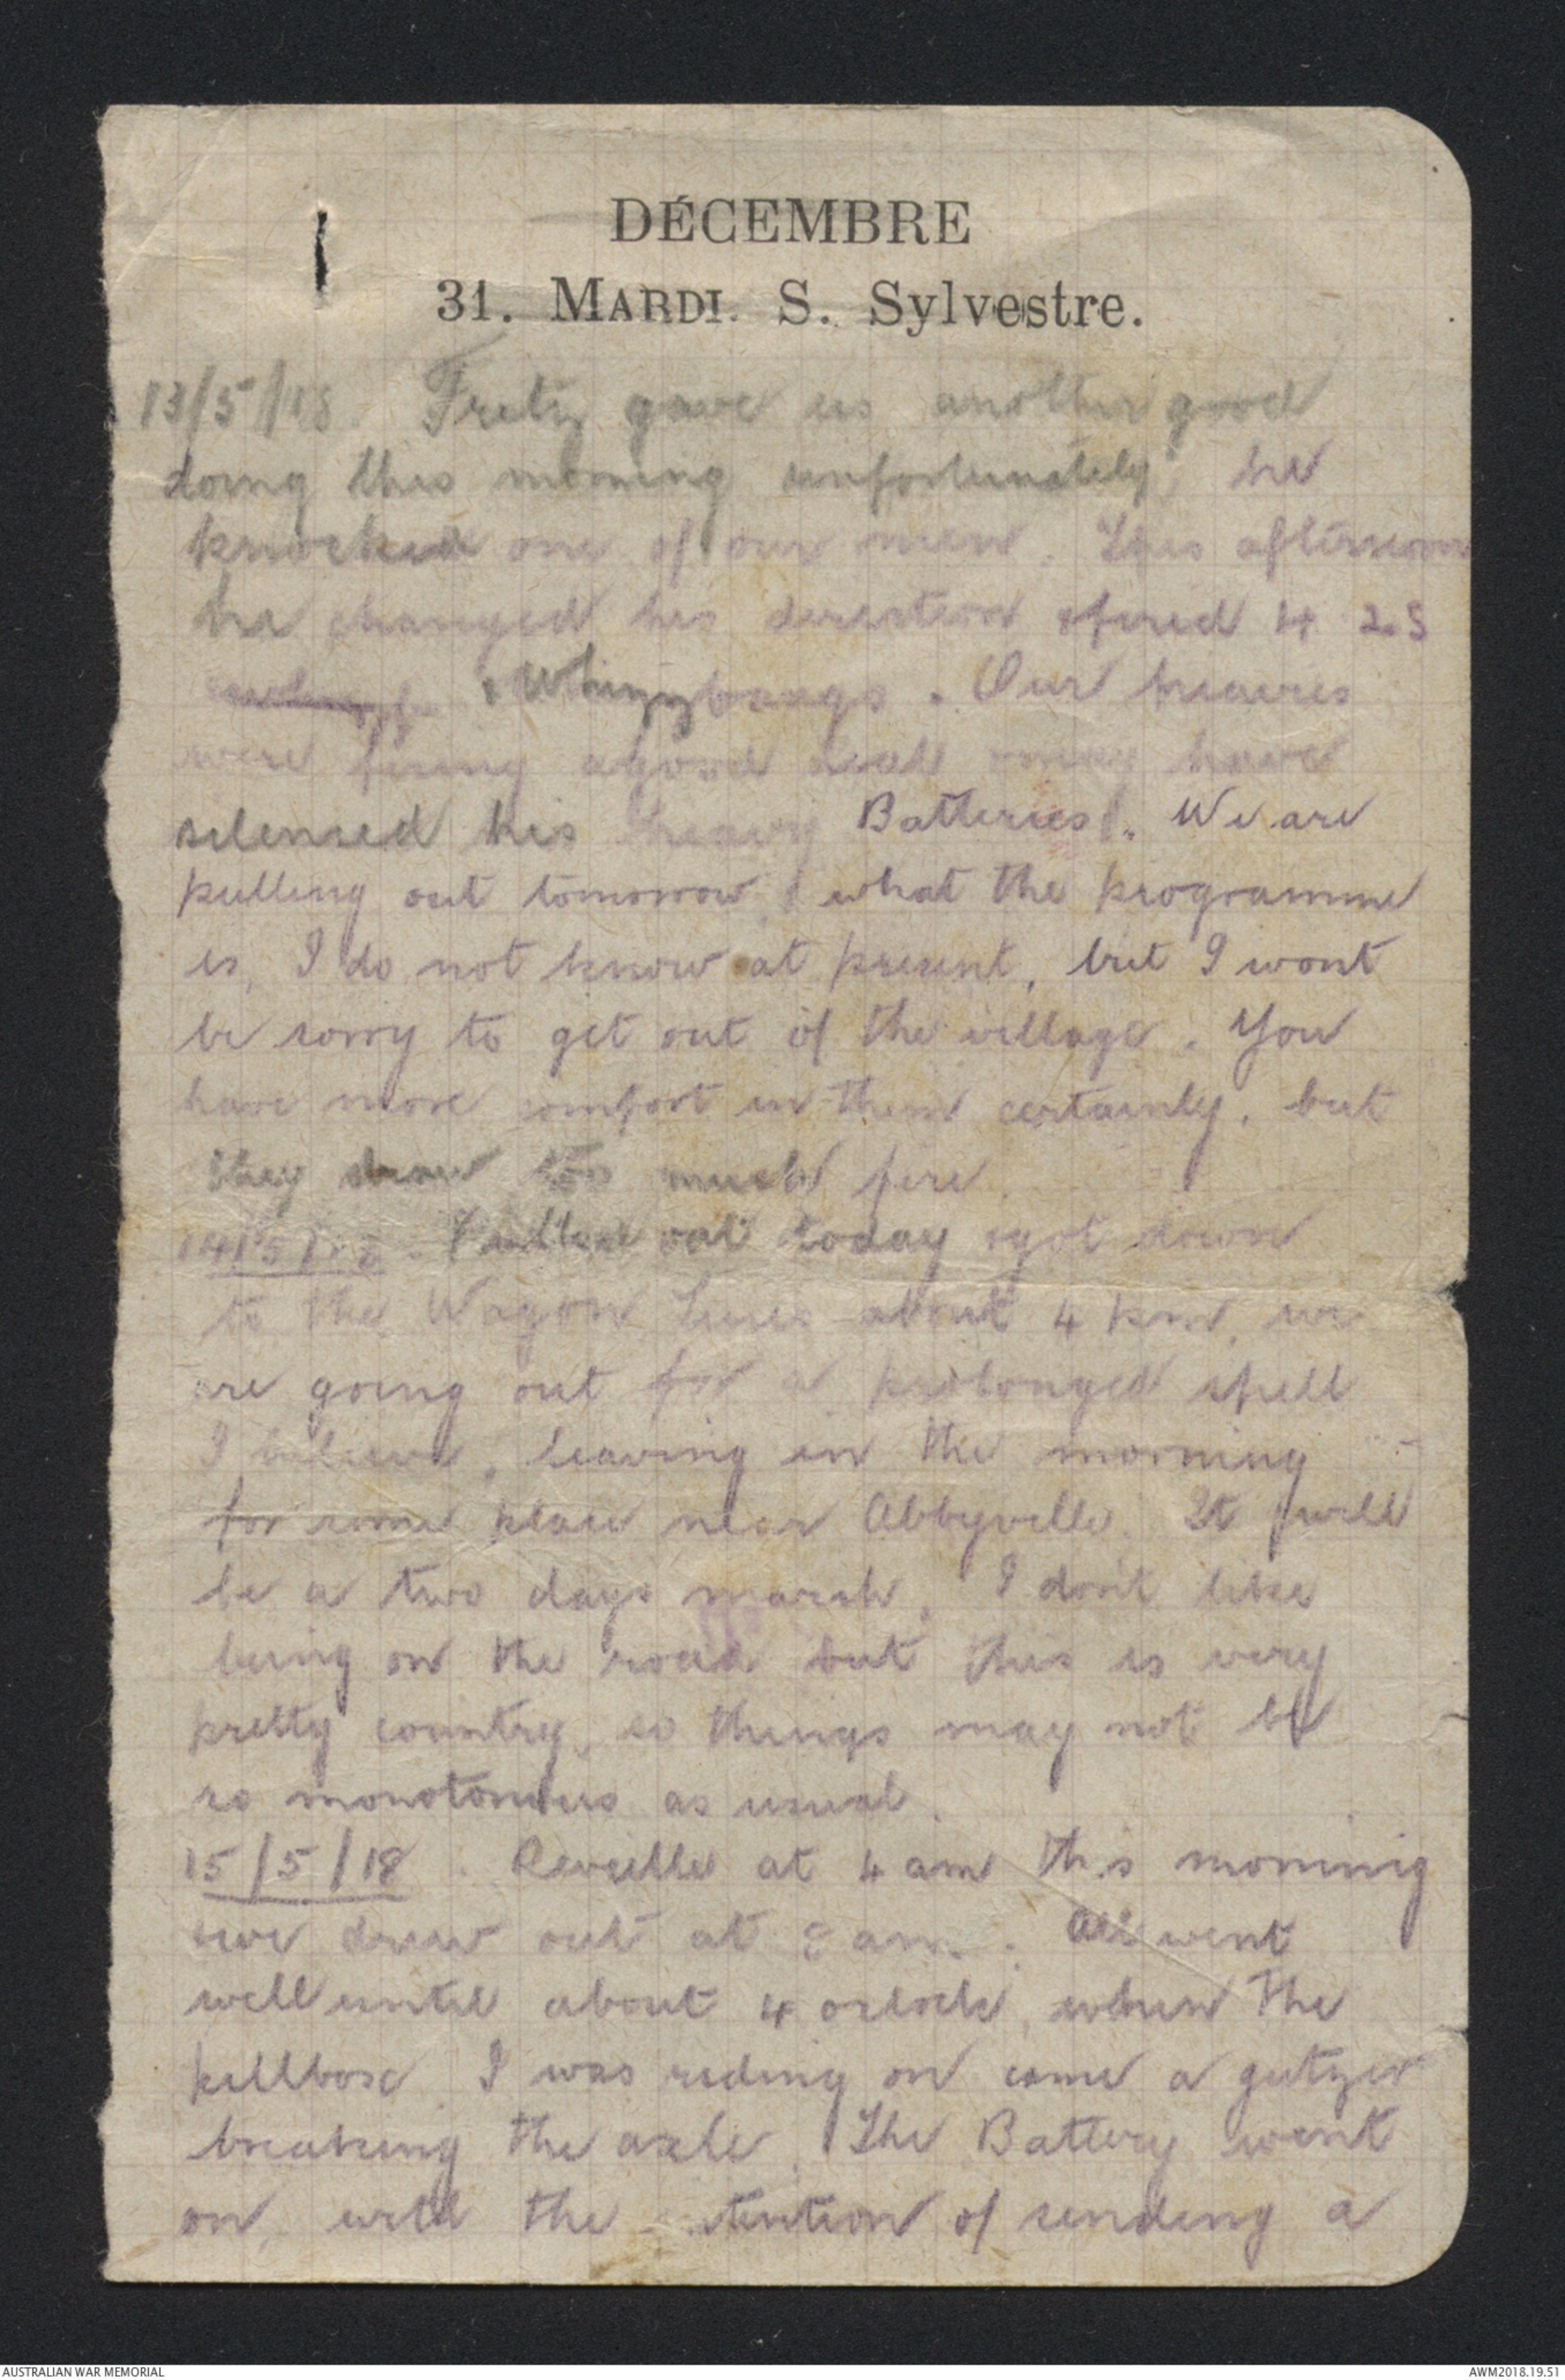 DÉCEMBRE
31. MARDI. S. Sylvestre.
13/5/18. Fritz gave us another good
doing this morning unfortunately he
knocked one of our men. This afternoon
he changed his direction & fired 4.2s
& Whizzbangs. Our heavies
were firing a good deal & may have
silenced his heavy Batteries. We are
pulling out tomorrow, what the programme
is, I do not know at present, but I wont
be sorry to get out of the village. You
have more comfort in them certainly, but
they draw too much fire.
14/5/18. Pulled out today & got down
to the Wagon Lines about 4 km, we
are going out for a prolonged spell
I believe, leaving in the morning
for some place near Abbyville. It will
be a two days march. I dont like
being on the road but this is very
pretty country, so things may not be
so monotonous as usual.
15/5/18. Reveille at 4 am this morning
& we drew out at 8 am. All went
well until about 4 oclock, when the
pillbox I was riding on came a gutzer
breaking the axle. The Battery went
on, with the intention of sending a
AUSTRALIAN WAR MEMORIAL
AWM2018.19.51